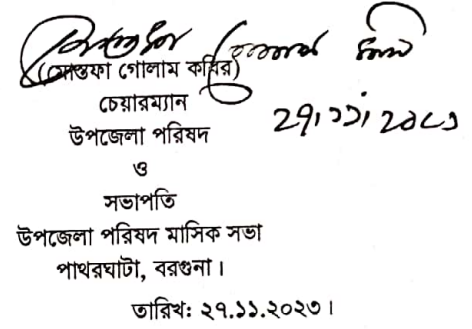 (মোস্তফা গোলাম কবির)
চেয়ারম্যান
উপজেলা পরিষদ
ও
সভাপতি
উপজেলা পরিষদ মাসিক সভা
পাথরঘাটা, বরগুনা।
তারিখ: ২৭.১১.২০২৩।